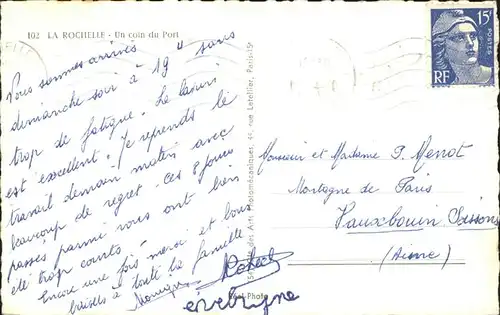 102 LA ROCHELLE - Un coin du Port
Nous sommes arrivés
dimanche soir à 19 H sans
trop de fatigue. Le
est excellent. Je reprends le
travail demain matin avec
beaucoup de regret. Ces 8 jours
passés parmi vous ont bien
été trop courts -
Encore une fois merci et bons
baisers à toute la famille
Monique Robert
Réel-Photo
Société des Arts Photomécaniques, 44, rue Letellier, Paris-15e
15F
POSTES
RF
Monsieur et Madame P. Menot
Montagne de Paris
Vauxbouin Soissons
(Aisne)